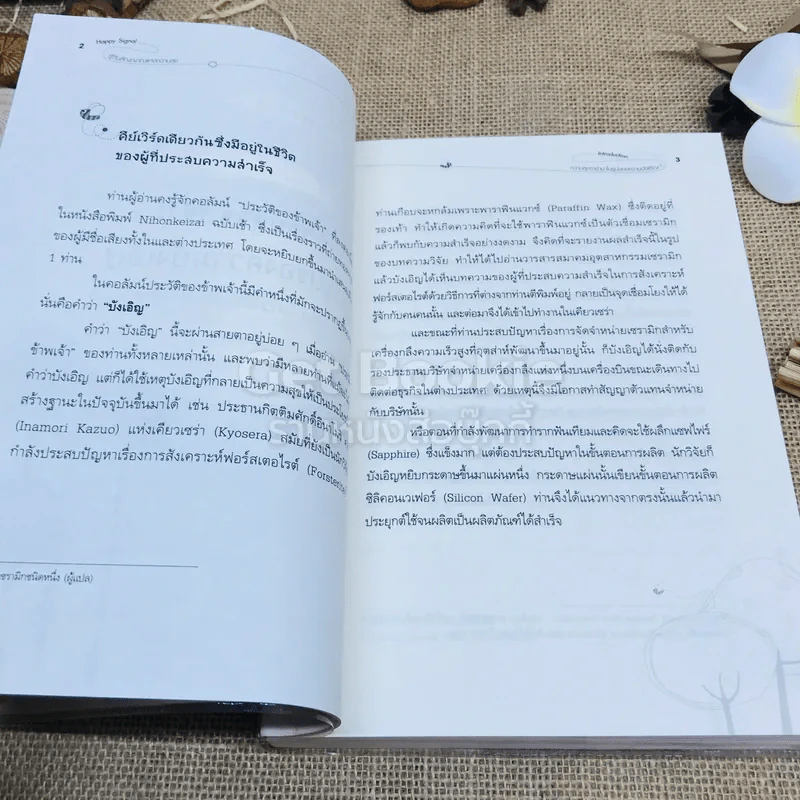 2 Happy Signal
คีย์เวิร์ดเดียวกันซึ่งมีอยู่ในชีวิต
ของผู้ที่ประสบความสำเร็จ
ท่านผู้อ่านคงรู้จักคอลัมน์ "ประวัติของข้าพเจ้า"
ในหนังสือพิมพ์ Nihonkeizai ฉบับเช้า ซึ่งเป็นเรื่องราวที่
ของผู้มีชื่อเสียงทั้งในและต่างประเทศ โดยจะหยิบยกขึ้นมา
1 ท่าน
ในคอลัมน์ประวัติของข้าพเจ้านี้มีคำหนึ่งที่มักจะ
นั่นคือคำว่า "บังเอิญ"
คำว่า "บังเอิญ" นี้จะผ่านสายตาอยู่บ่อย ๆ เมื่ออ่าน
ข้าพเจ้า" ของท่านทั้งหลายเหล่านั้น และพบว่ามีหลายท่านที่
คำว่าบังเอิญ แต่ก็ได้ใช้เหตุบังเอิญที่กลายเป็นความสุขให้เป็น
สร้างฐานะในปัจจุบันขึ้นมาได้ เช่น ประธานกิตติมศักดิ์
(Inamori Kazuo) แห่งเคียวเซร่า (Kyosera) สมัยที่ยังเป็น
กำลังประสบปัญหาเรื่องการสังเคราะห์ฟอร์สเตอไรต์
ชนิดหนึ่ง (ผู้แปล)
Introduction 3
ท่านเกือบจะหกล้มเพราะพาราฟินแวกซ์ (Paraffin Wax) ซึ่งติดอยู่ที่
รองเท้า ทำให้เกิดความคิดที่จะใช้พาราฟินแวกซ์เป็นตัวเชื่อมเซรามิก
แล้วก็พบกับความสำเร็จอย่างงดงาม จึงคิดที่จะรายงานผลสำเร็จนี้ในรูป
ของบทความวิจัย ทำให้ได้ไปอ่านวารสารสมาคมอุตสาหกรรมเซรามิก
แล้วบังเอิญได้เห็นบทความของผู้ที่ประสบความสำเร็จในการสังเคราะห์
ฟอร์สเตอไรต์ด้วยวิธีการที่ต่างจากท่านตีพิมพ์อยู่ กลายเป็นจุดเชื่อมโยงให้ได้
รู้จักกับคนคนนั้น และต่อมาจึงได้เข้าไปทำงานในเคียวเซร่า
และขณะที่ท่านประสบปัญหาเรื่องการจัดจำหน่ายเซรามิกสำหรับ
เครื่องกลึงความเร็วสูงที่อุตส่าห์พัฒนาขึ้นมาอยู่นั้น ก็บังเอิญได้นั่งติดกับ
รองประธานบริษัทจำหน่ายเครื่องกลึงแห่งหนึ่งบนเครื่องบินขณะเดินทางไป
ติดต่อธุรกิจในต่างประเทศ ด้วยเหตุนี้จึงมีโอกาสทำสัญญาตัวแทนจำหน่าย
กับบริษัทนั้น
หรือตอนที่กำลังพัฒนาการทำรากฟันเทียมและคิดจะใช้ผลึกแซฟไฟร์
(Sapphire) ซึ่งแข็งมาก แต่ต้องประสบปัญหาในขั้นตอนการผลิต นักวิจัยก็
บังเอิญหยิบกระดาษขึ้นมาแผ่นหนึ่ง กระดาษแผ่นนั้นเขียนขั้นตอนการผลิต
ซิลิคอนเวเฟอร์ (Silicon Wafer) ท่านจึงได้แนวทางจากตรงนั้นแล้วนำมา
ประยุกต์ใช้จนผลิตเป็นผลิตภัณฑ์ได้สำเร็จ